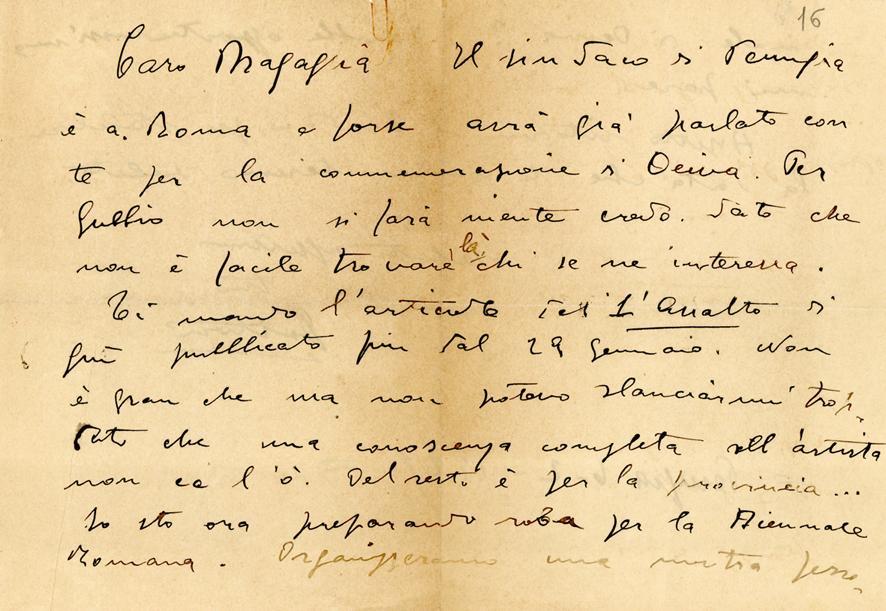 16
Caro Magaglià Il sindaco di Perugia
è a. Roma e forse avrà già parlato con
te per la commemorazione di Deiva. Per
Gubbio non si farà niente credo. dato che
non è facile trovare là chi se ne interessa.
Ti mando l'articolo del L'Assalto di
qui pubblicato fin dal 29 gennaio. Non
è gran che ma non potevo slanciarmi trop-
dato che una conoscenza completa dell'artista
non ce l'ò. Del resto è per la provincia...
Io sto ora preparando roba per la Biennale
Romana. Organizzeremo una mostra